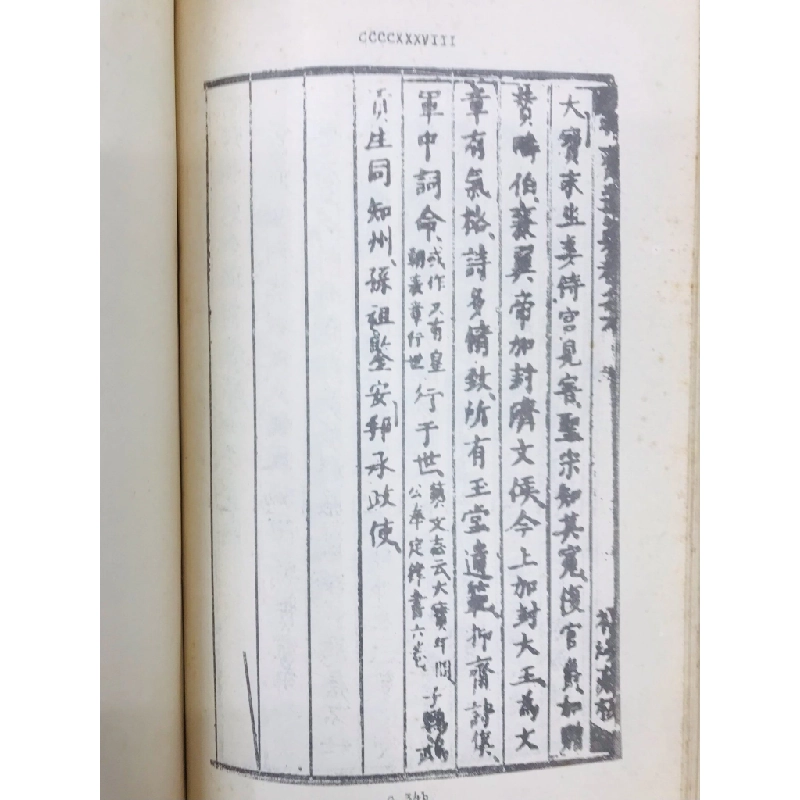 CCCCXXXVIII
大寶末坐妻侍宮見害聖宗知其冤復官爵加贈
賛疇伯襄翼帝加封濟文侯今上加封大王為文
章有氣格詩多精致所有玉堂遺範抑齋詩集
軍中詞命或作又有皇朝表章行世行于世藝文志云大寶年間公奉定律書六卷子鸚鵡武
員生同知州孫祖鑒安邦承政使